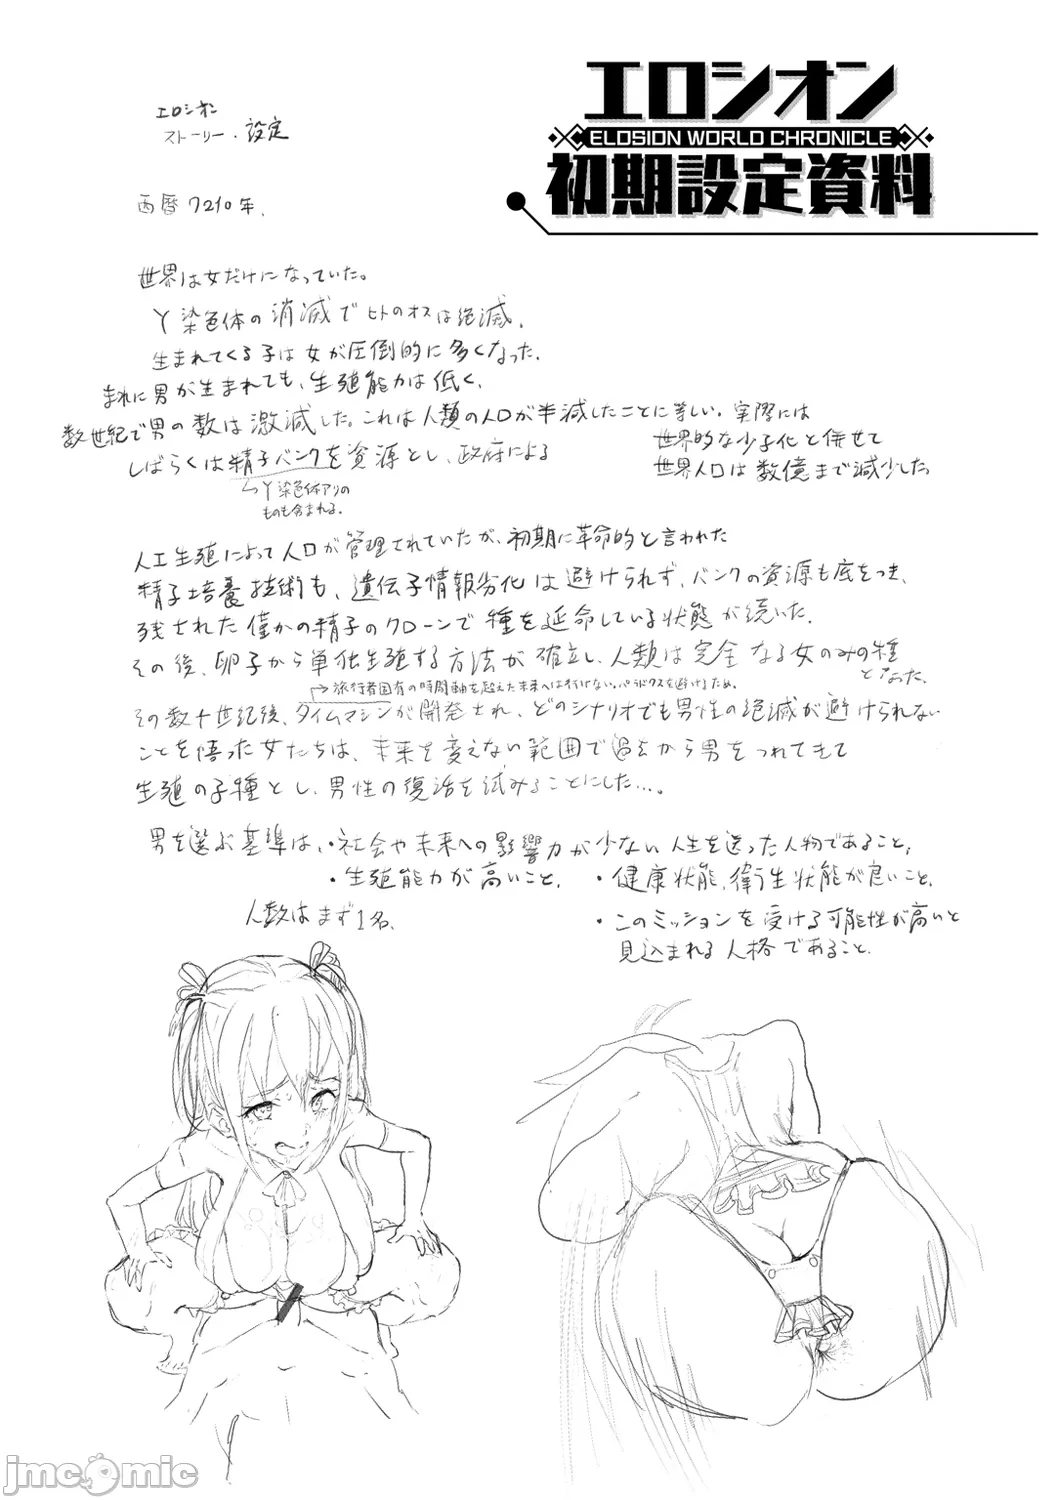 エロシオン
ELOSION WORLD CHRONICLE
初期設定資料
エロシオン
ストーリー・設定
西暦7210年、
世界は女だけになっていた。
Y染色体の消滅でヒトのオスは絶滅、
生まれてくる子は女が圧倒的に多くなった、
まれに男が生まれても、生殖能力は低く、
数世紀で男の数は激減した。これは人類の人口が半減したことに等しい。実際には
世界的な少子化と併せて
世界人口は数億まで減少した。
しばらくは精子バンクを資源とし、政府による
↳Y染色体アリの
ものも含まれる。
人工生殖によって人口が管理されていたが、初期に革命的と言われた
精子培養技術も、遺伝子情報劣化は避けられず、バンクの資源も底をつき、
残された僅かの精子のクローンで種を延命している状態が続いた。
その後、卵子から単独生殖する方法が確立し、人類は完全なる女のみの種
となった。
→旅行者固有の時間軸を超えた未来へは行けない。パラドクスを避けるため。
その数十世紀後、タイムマシンが開発され、どのシナリオでも男性の絶滅が避けられない
ことを悟った女たちは、未来を変えない範囲で過去から男をつれてきて
生殖の子種とし、男性の復活を試みることにした…。
男を選ぶ基準は、・社会や未来への影響力が少ない人生を送った人物であること、
・生殖能力が高いこと、 ・健康状態、衛生状態が良いこと、
人数はまず1名、
・このミッションを受ける可能性が高いと
見込まれる人格であること、
jmcomic